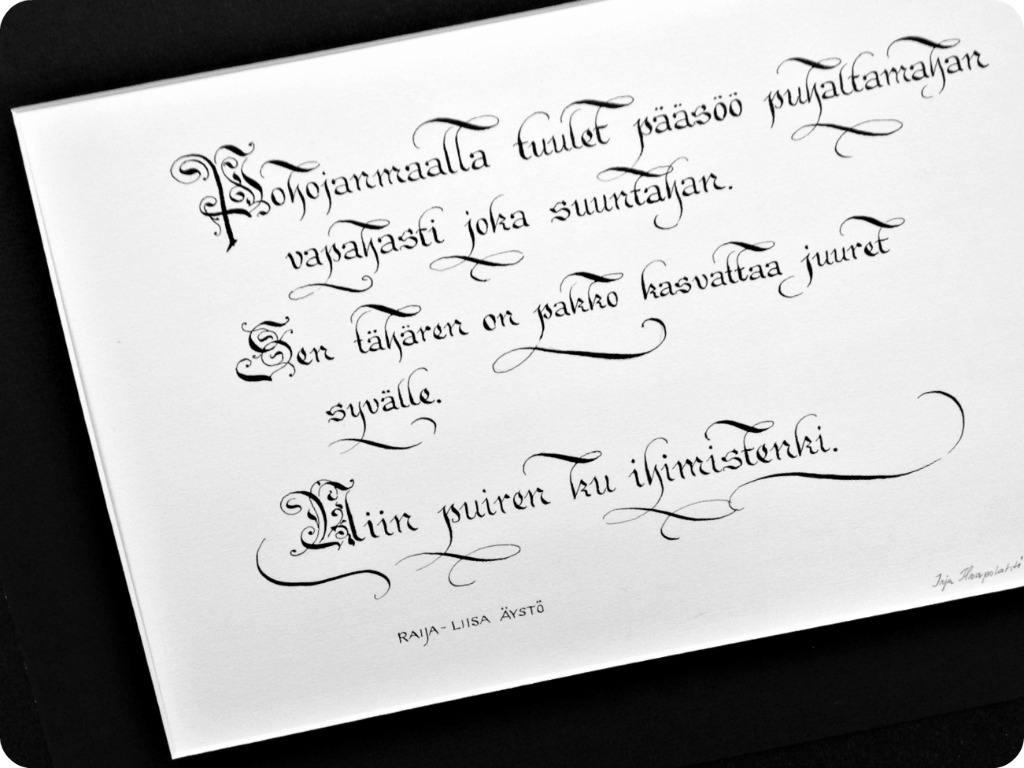 Pohojanmaalla tuulet pääsöö puhaltamahan
vapahasti joka suuntahan.
Sen tähären on pakko kasvattaa juuret
syvälle.
Niin puiren ku ihimistenki.
RAIJA-LIISA ÄYSTÖ
Irja Haapolahti